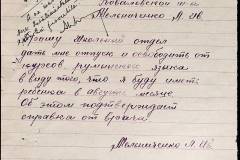 Ковальской ш-ы
Мельниченко Л. Ив.
Прошу школьный отдел
дать мне отпуск и освободить от
курсов румынского языка
в виду того, что я буду иметь
ребенка в августе месяце.
Об этом подтверждает
справка от врача
Мельниченко Л. Ив